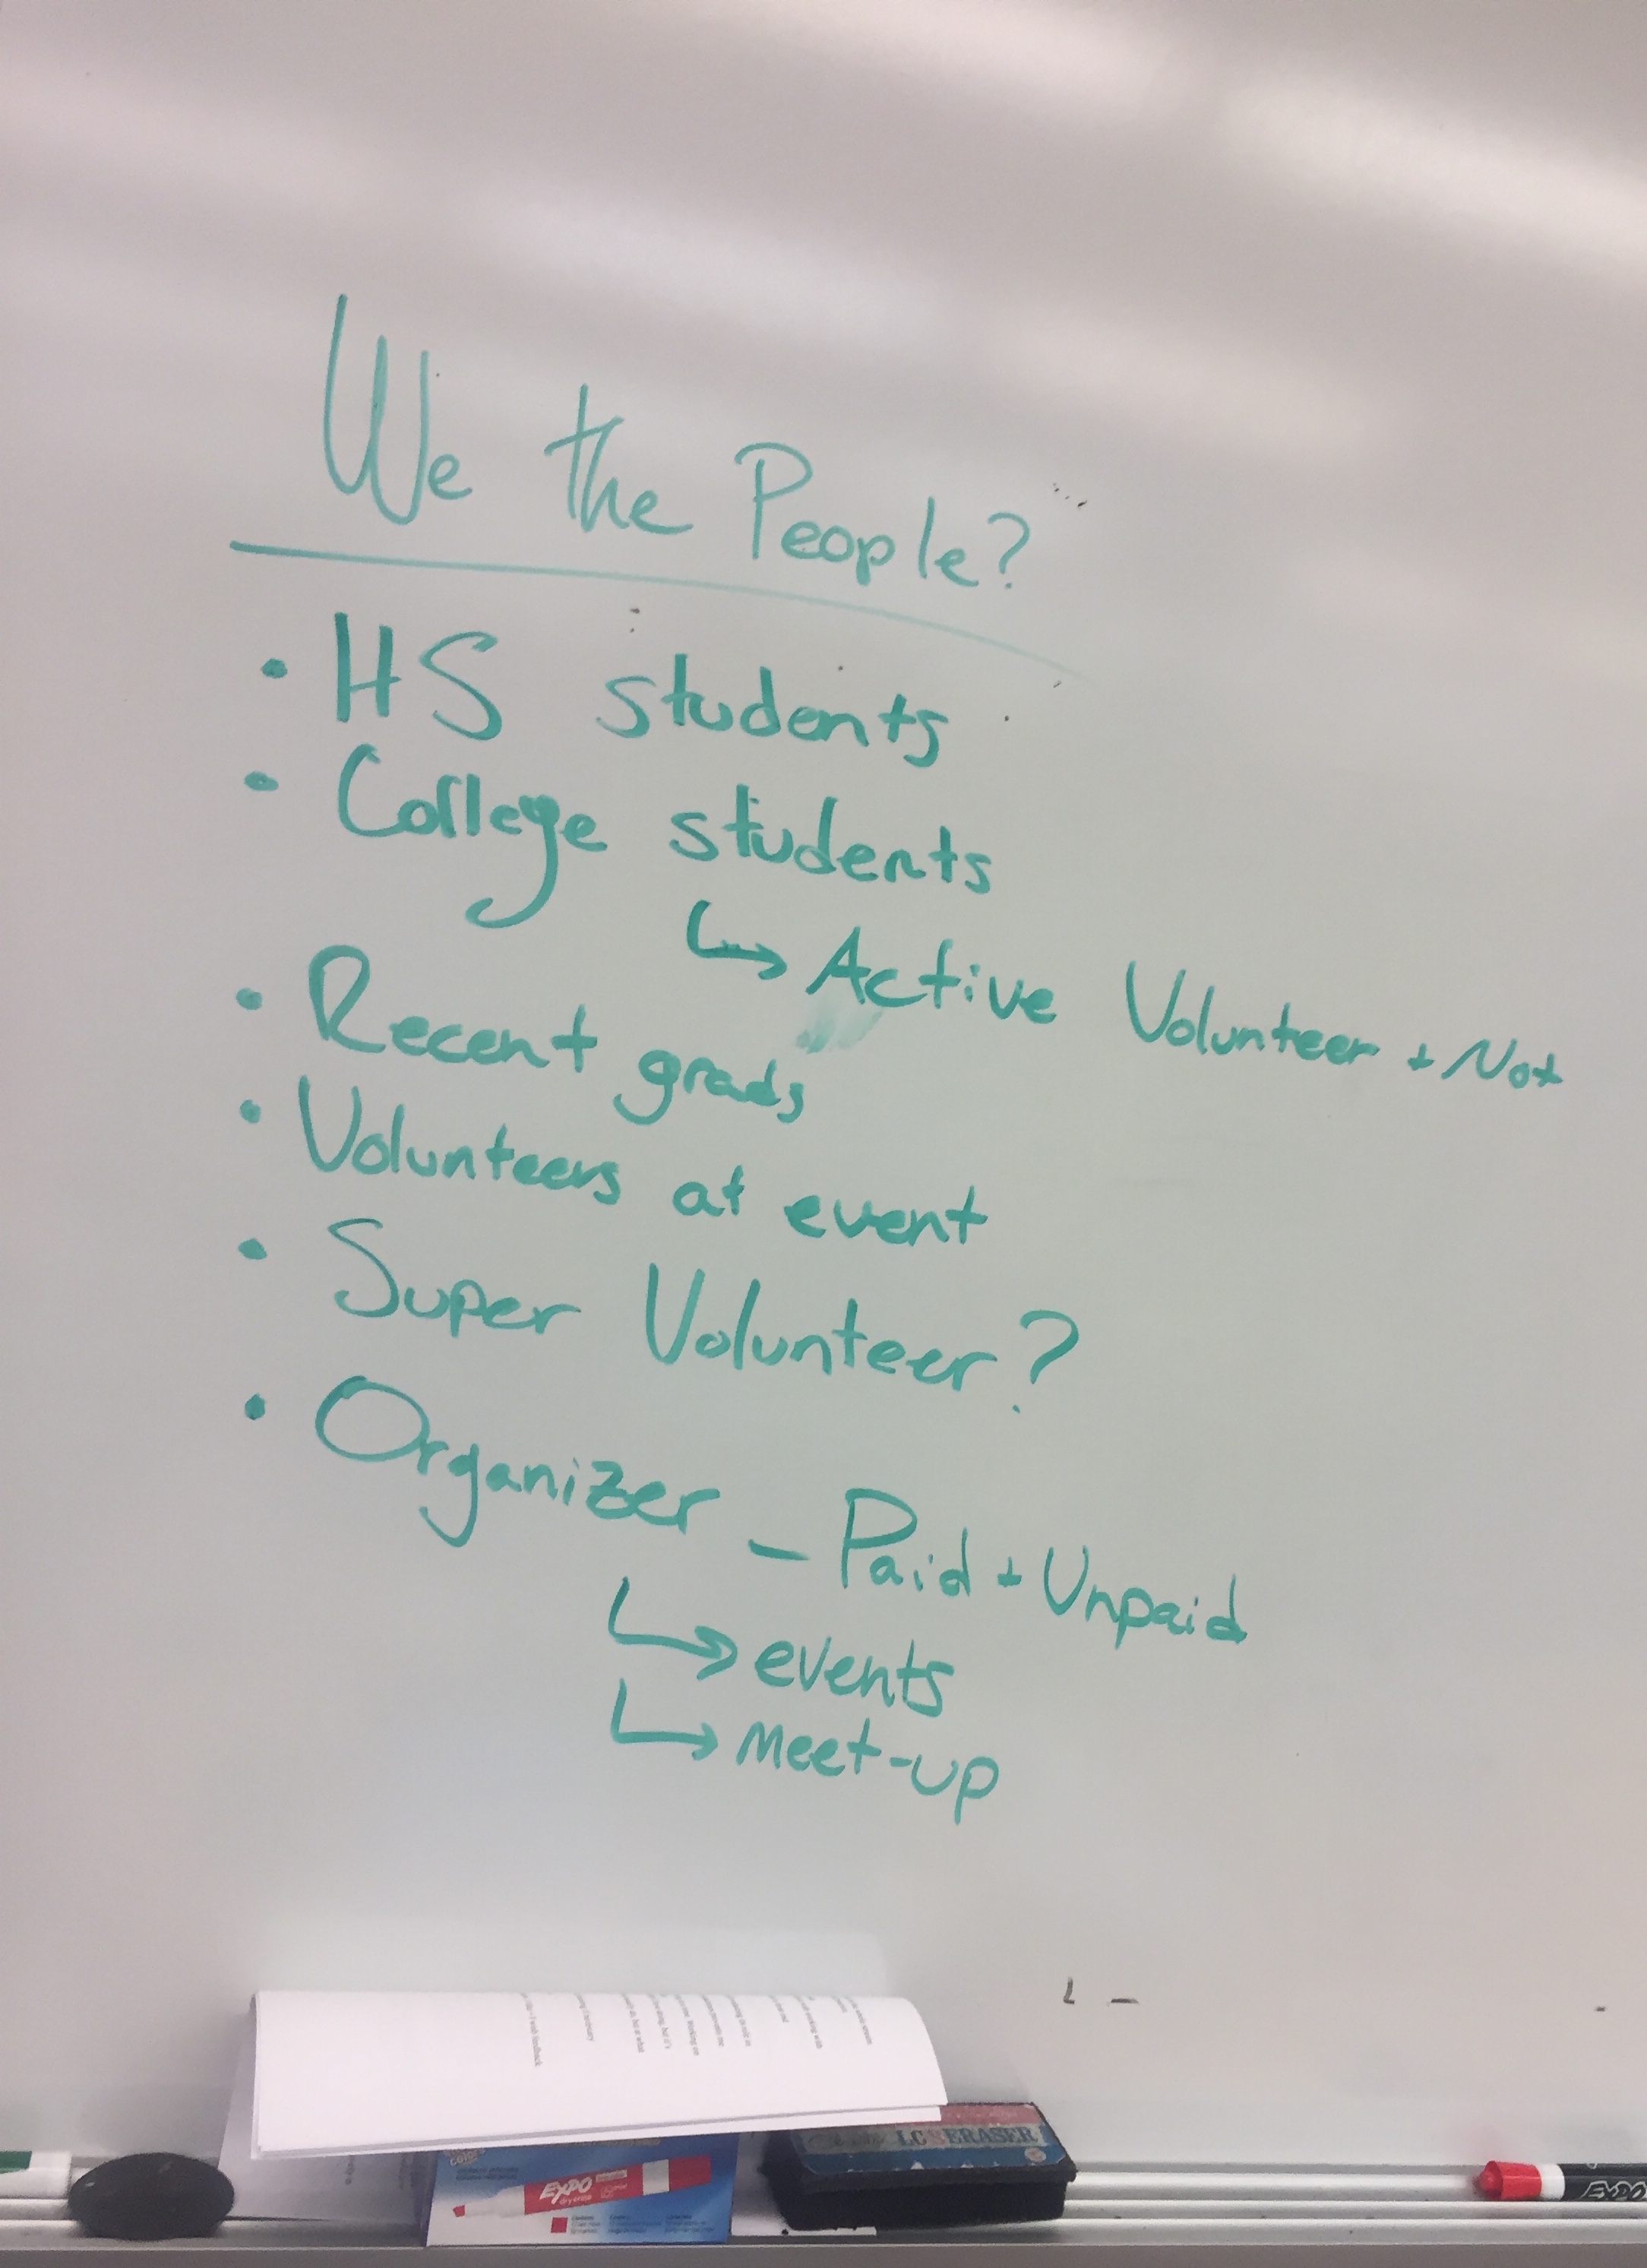 We the People?
• HS students
• College students
↳ Active Volunteer + Not
• Recent grads
• Volunteers at event
• Super Volunteer?
• Organizer - Paid + Unpaid
↳ events
↳ Meet-up
EXPO
dry erase
ERASER